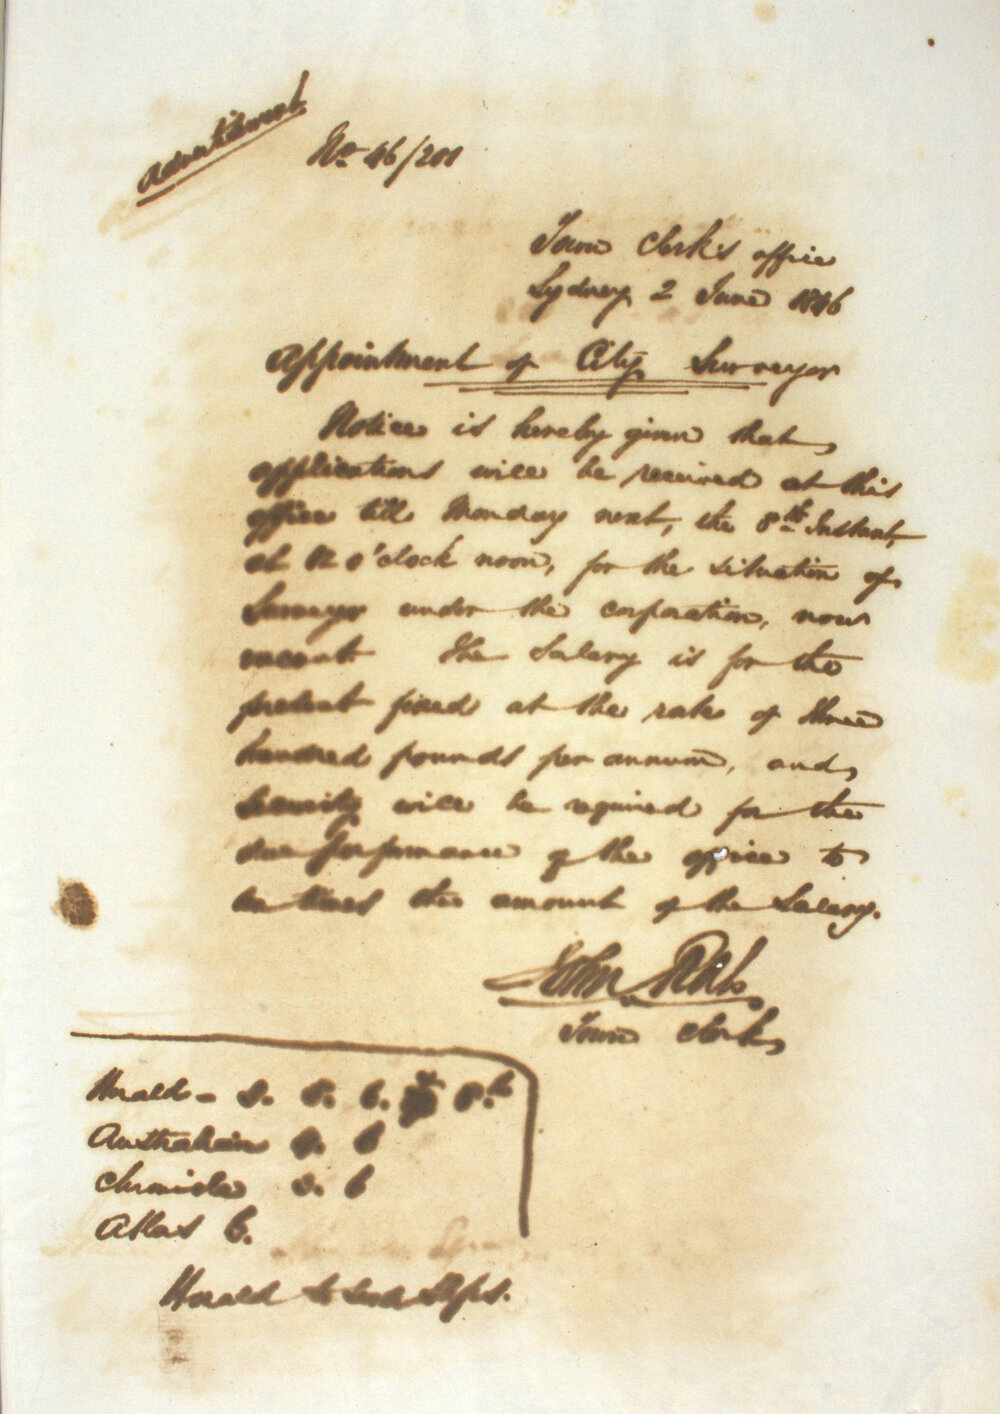 Advertisement
No 46/201
Town Clerk's office
Sydney 2 June 1846
Appointment of City Surveyor
Notice is hereby given that
applications will be received at this
office till Monday next, the 8th Instant,
at 12 o'clock noon, for the situation of
Surveyor under the corporation, now
vacant The Salary is for the
present fixed at the rate of three
hundred pounds per annum, and
security will be required for the
due performance of the office to
times the amount of the Salary.
John
Town Clerk
Herald - 5. 6. 8th
Australian 6
Chronicle 6
Atlas 6.
Herald to send Slips.